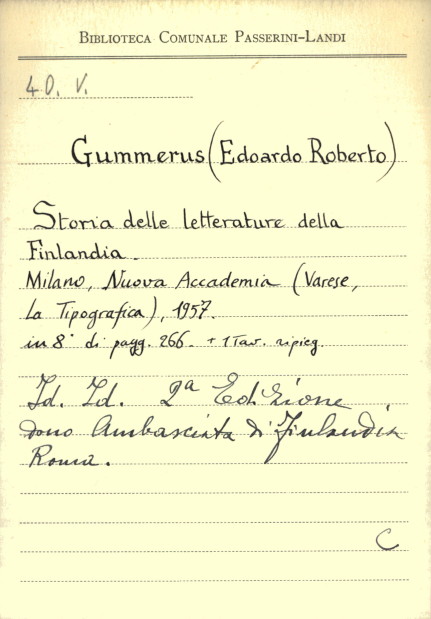 BIBLIOTECA COMUNALE PASSERINI-LANDI
40. V.
Gummerus (Edoardo Roberto)
Storia delle letterature della
Finlandia.
Milano, Nuova Accademia (Varese,
La Tipografica), 1957.
in 8° di pagg. 266. + 1 Tav. ripieg.
Id. Id. 2ª Edizione
dono Ambasciata di Finlandia
Roma.
C